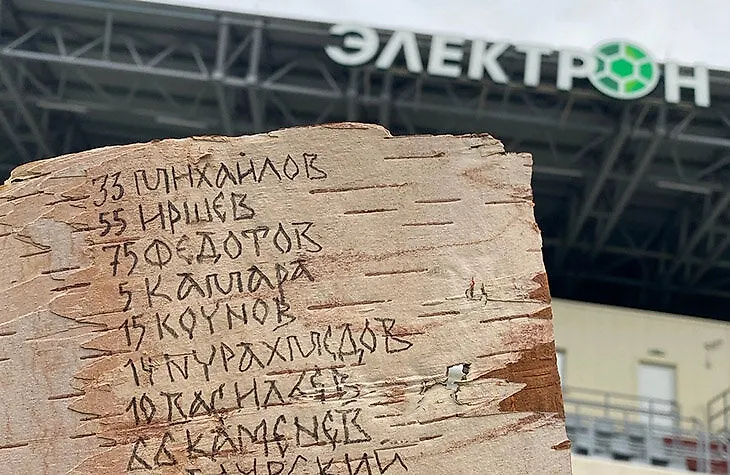 ЭЛЕКТРОН
33 МИХАЙЛОВ
55 ИРШЕВ
75 ФЕДОТОВ
5 КАМАРА
15 КОУНОВ
14 НУРАХМЕДОВ
10 ВАСИЛЬЕВ
66 КАМЕНЕВ